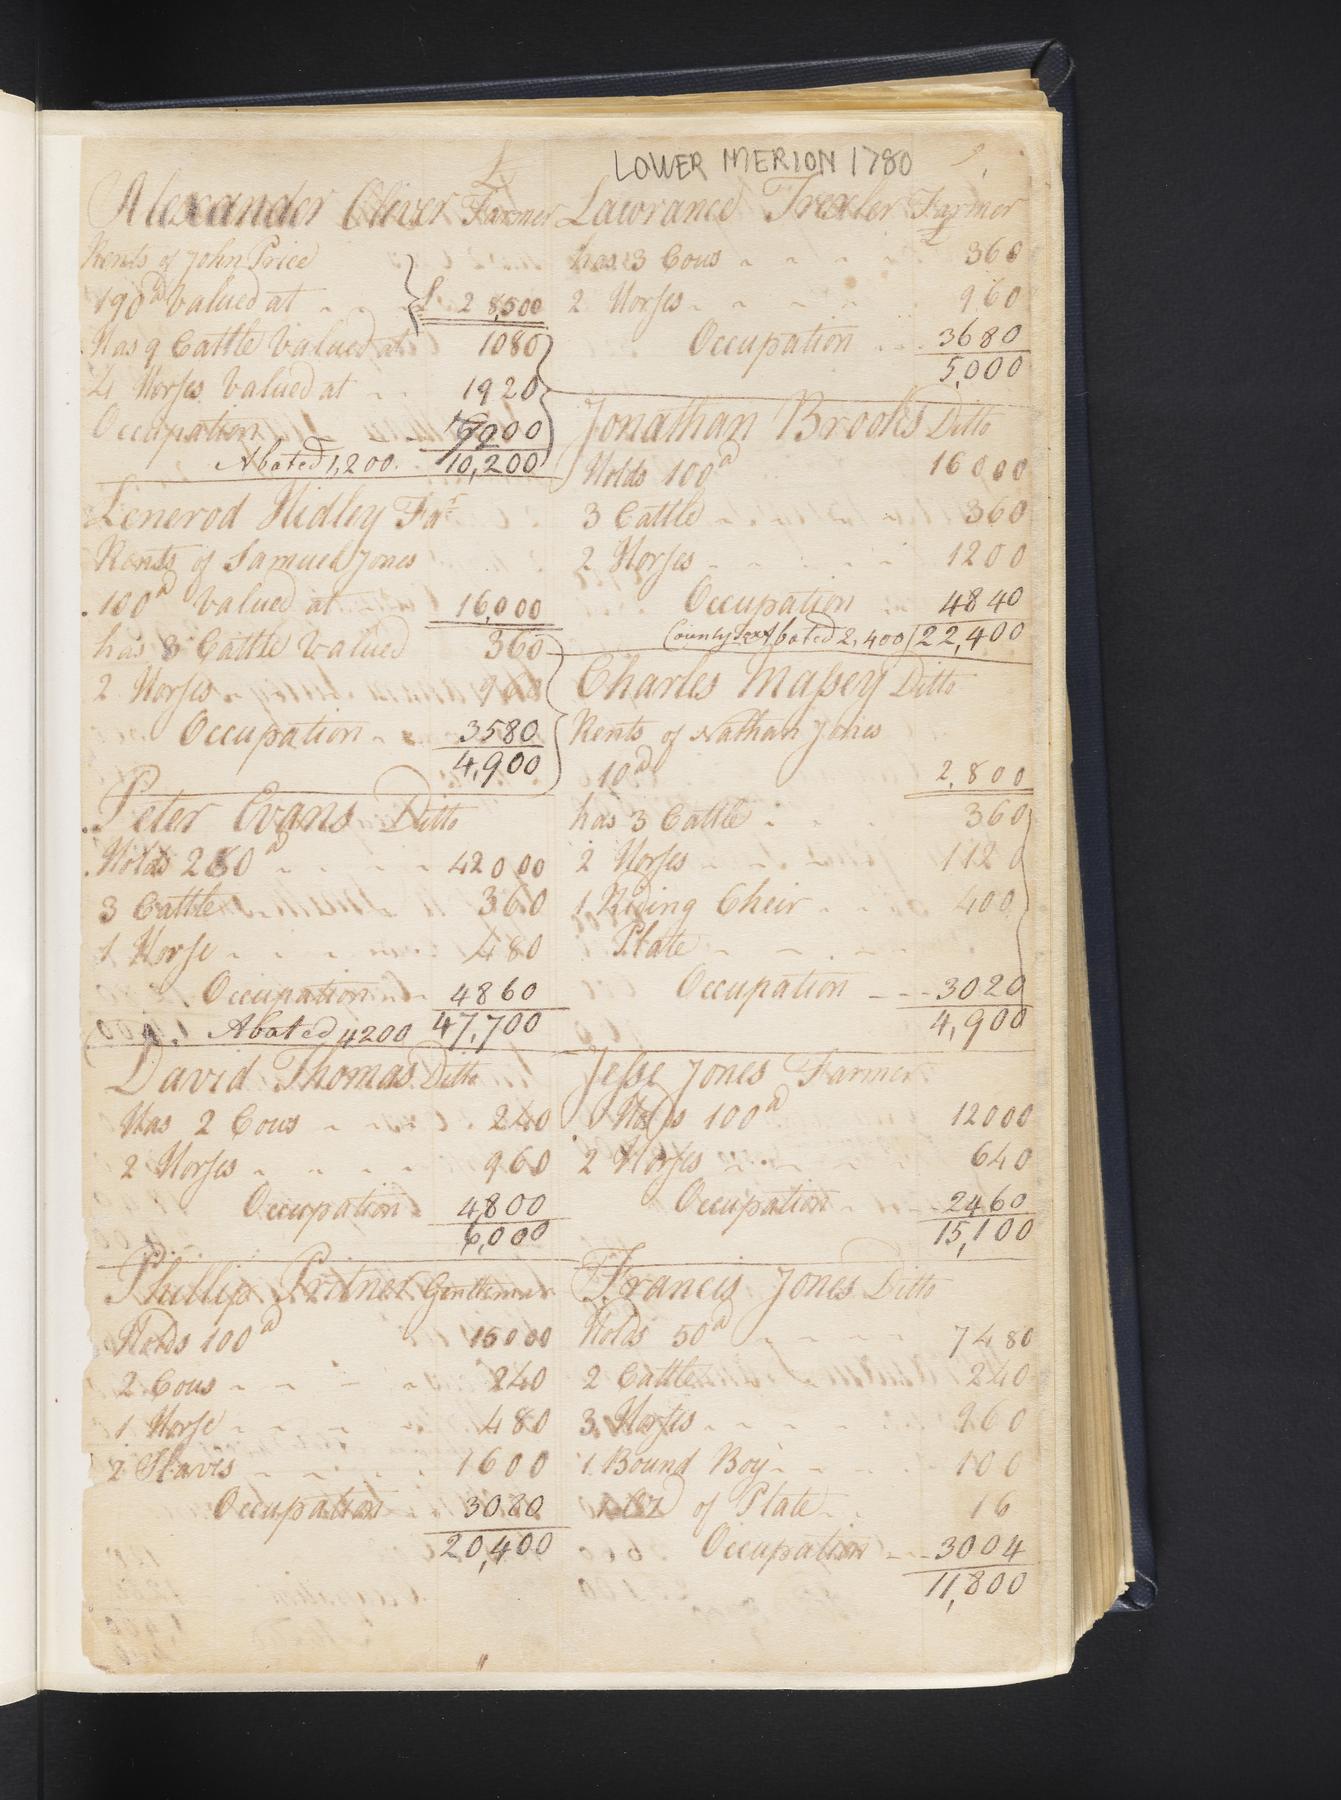 LOWER MERION 1780
£
Alexander Oliver Farmer
Rents of John Price
190a Valued at £ 28,500
Has 9 Cattle Valued at 1080
4 Horses Valued at 1920
Occupation
Abated 1,200. 10,200
Lenerod Hidley Far
Rents of Samuel Jones
100a Valued at 16,000
has 3 Cattle Valued 360
2 Horses 960
Occupation 3580
4,900
Peter Evans Ditto
Holds 280a 42000
3 Cattle 360
1 Horse 480
Occupation 4860
Abated 4200 47,700
David Thomas Ditto
Has 2 Cous 240
2 Horses 960
Occupation 4800
6,000
Phillip Pritner Gentleman
Holds 100a 15000
2 Cous 240
1 Horse 480
2 Slaves 1600
Occupation 3080
20,400
Lawrance Trexler Farmer
£
has 3 Cous 360
2 Horses 960
Occupation 3680
5,000
Jonathan Brooks Ditto
Holds 100a 16000
3 Cattle 360
2 Horses 1200
Occupation 4840
County Tax Abated 2,400 22,400
Charles Massey Ditto
Rents of Nathan Jones
10a 2,800
has 3 Cattle 360
2 Horses 1120
1 Riding Cheir 400
Plate
Occupation 3020
4,900
Jesse Jones Farmer
Holds 100a 12000
2 Horses 640
Occupation 2460
15,100
Francis Jones Ditto
Holds 50a 7480
2 Cattle 240
3 Horses 960
1 Bound Boy 100
of Plate 16
Occupation 3004
11,800